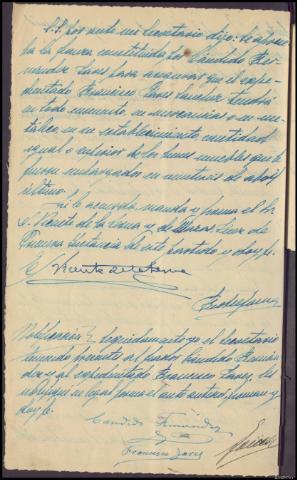 S.S. por ante mi Secretario dijo: Se aprueba
la fianza constituida por Cándido Fer-
nandez Sanz para asegurar que el expe-
dientado Francisco Sanz tendrá
en todo momento, en mercancias o en me-
tálico en su establecimiento cantidad
igual o superior de los bienes muebles que le
fueron embargados en de abril
último.
Así lo acuerda, manda y firma el Sr.
D. Vicente de la Serna y de Juez de
Primera Instancia de este partido, y doy fe.
E/ Vicente de la Serna
Notificación/ Seguidamente yo el Secretario
teniendo presente al fiador Cándido Fernán-
dez y al expedientado Francisco Sanz, les
notifiqué en legal forma el auto anterior, firman y
doy fe.
Candido Fernández
Francisco Sanz